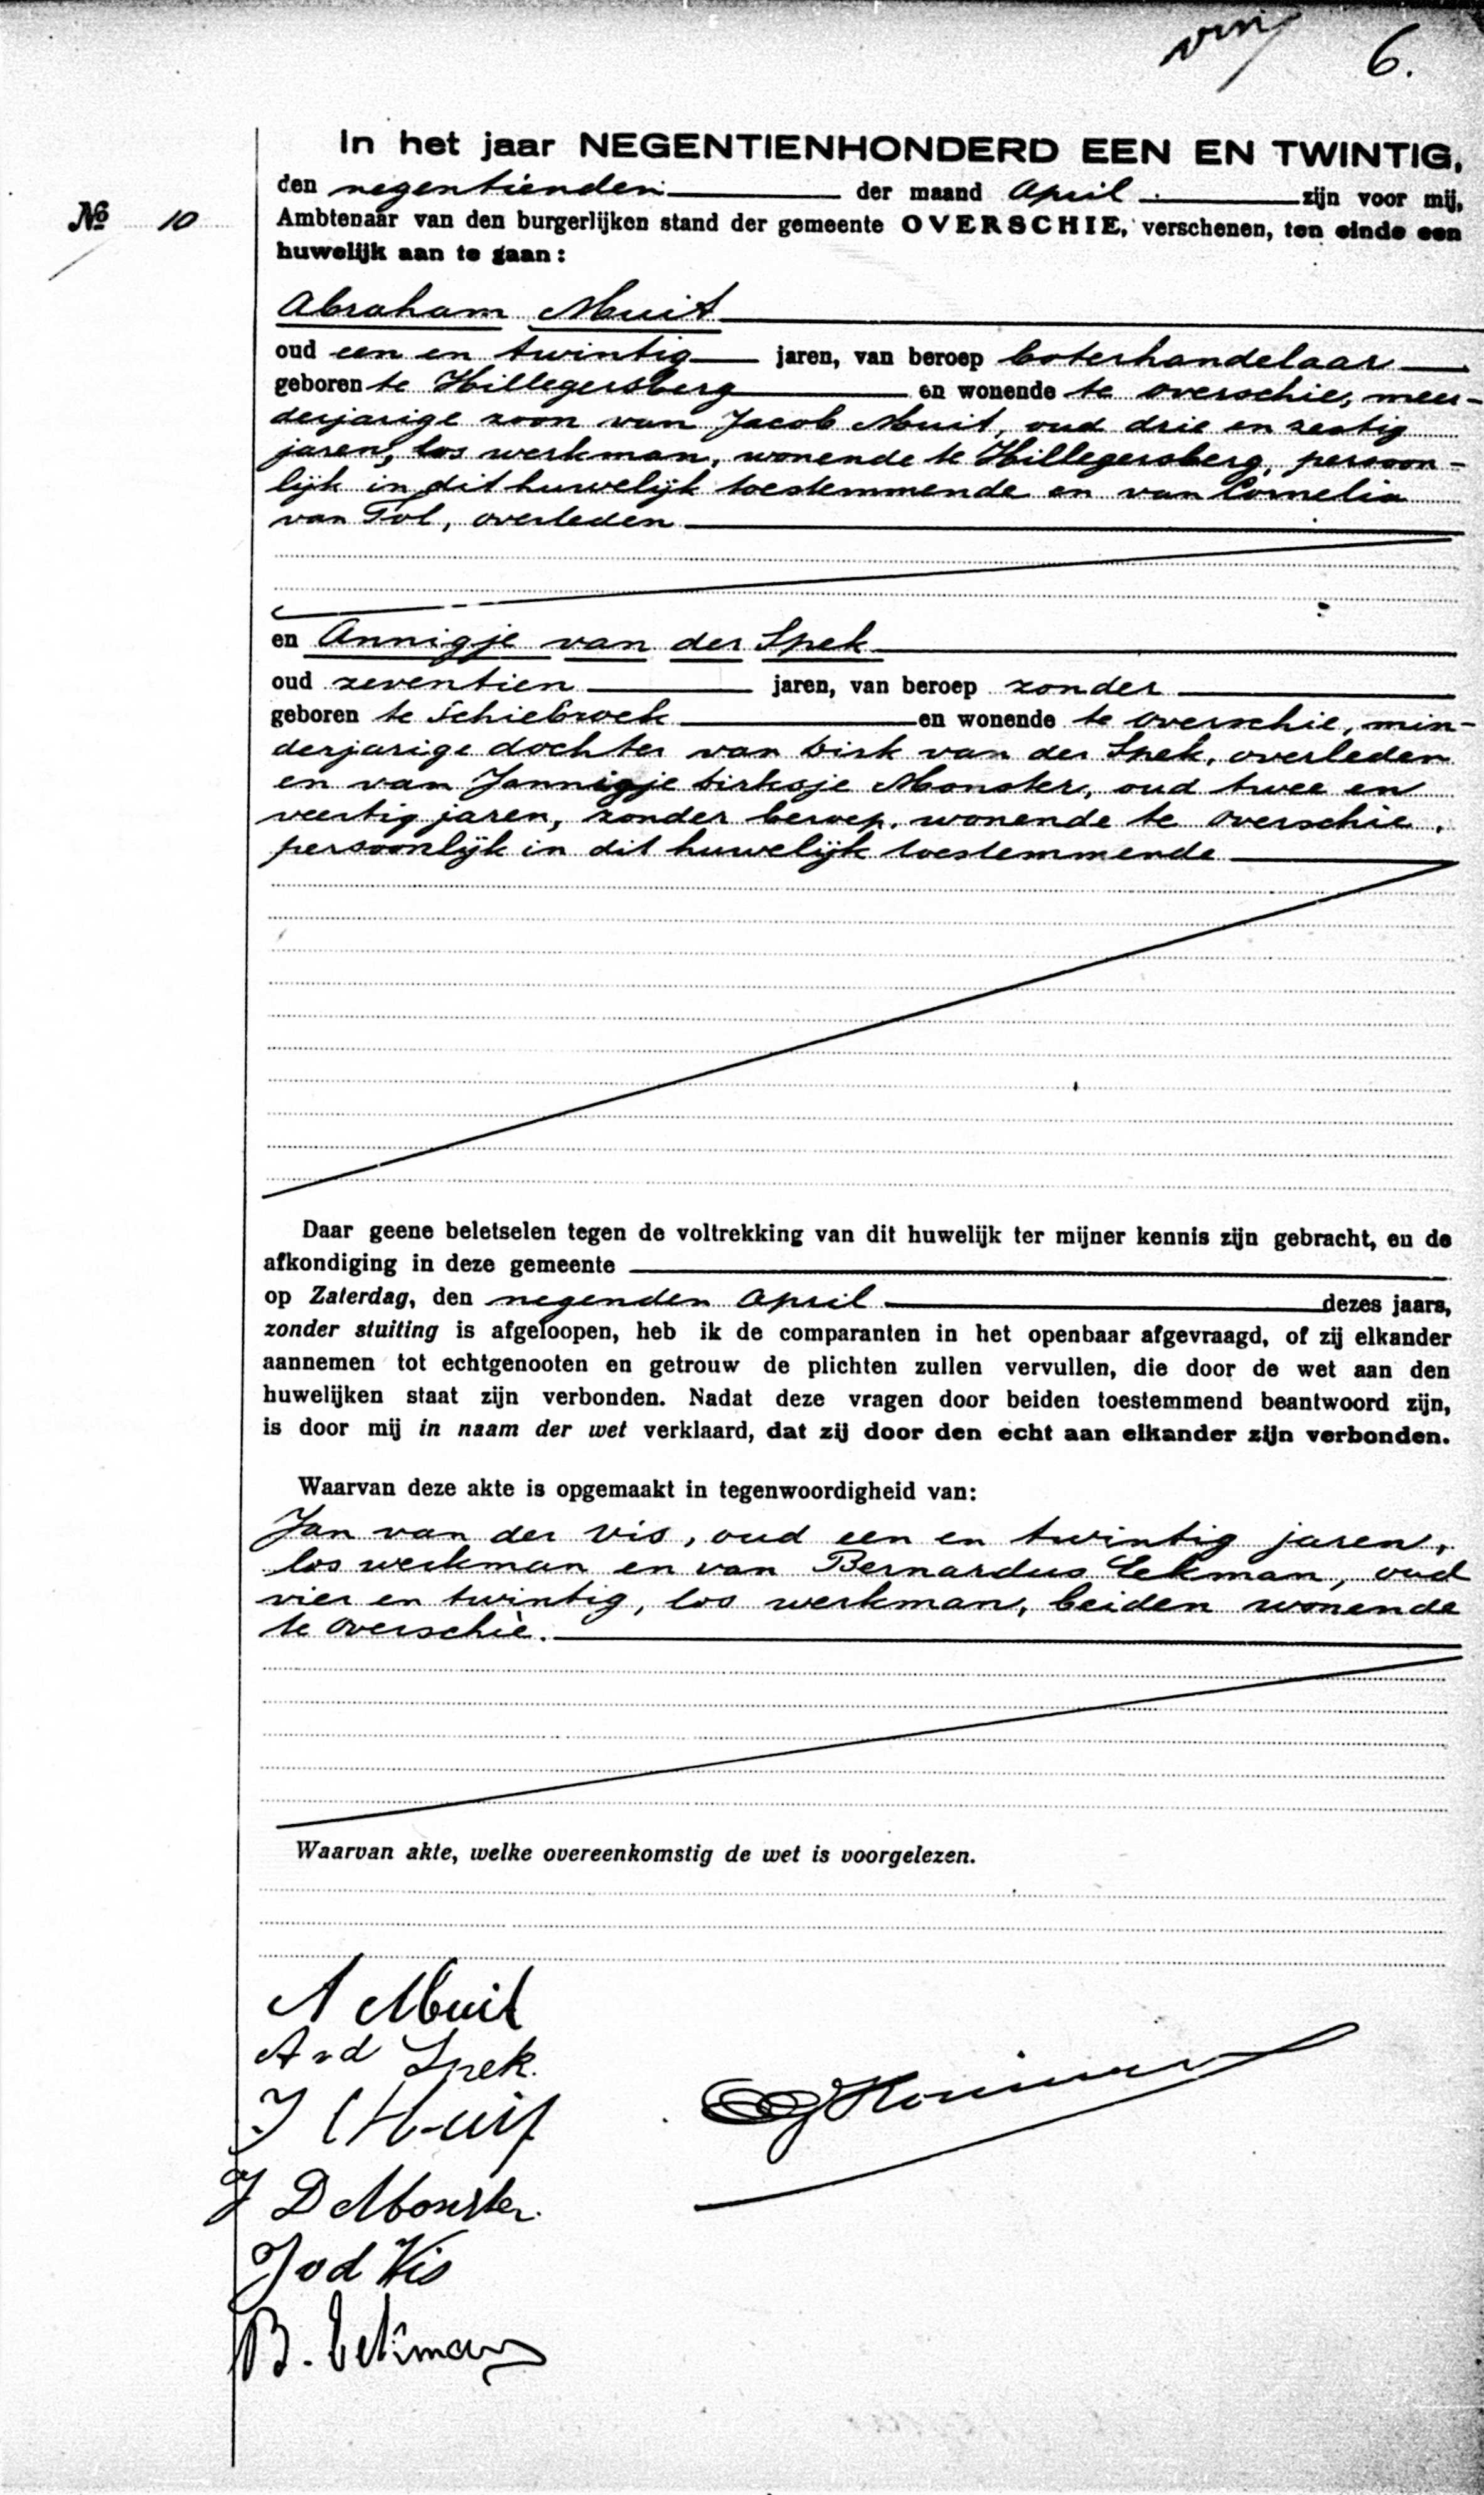 6.
In het jaar NEGENTIENHONDERD EEN EN TWINTIG,
den negentienden der maand April zijn voor mij,
No 10
Ambtenaar van den burgerlijken stand der gemeente OVERSCHIE, verschenen, ten einde een
huwelijk aan te gaan:
Abraham Muit
oud een en twintig jaren, van beroep boterhandelaar
geboren te Hillegersberg en wonende te Overschie, meer-
derjarige zoon van Jacob Muit, oud drie en zestig
jaren, los werkman, wonende te Hillegersberg, persoon-
lijk in dit huwelijk toestemmende en van Cornelia
van Tol, overleden
en Annigje van der Spek
oud zeventien jaren, van beroep zonder
geboren te Schiebroek en wonende te Overschie, min-
derjarige dochter van Dirk van der Spek, overleden
en van Jannigje Dirksje Monster, oud twee en
veertig jaren, zonder beroep, wonende te Overschie,
persoonlijk in dit huwelijk toestemmende
Daar geene beletselen tegen de voltrekking van dit huwelijk ter mijner kennis zijn gebracht, en de
afkondiging in deze gemeente
op Zaterdag, den negenden April dezes jaars,
zonder stuiting is afgeloopen, heb ik de comparanten in het openbaar afgevraagd, of zij elkander
aannemen tot echtgenooten en getrouw de plichten zullen vervullen, die door de wet aan den
huwelijken staat zijn verbonden. Nadat deze vragen door beiden toestemmend beantwoord zijn,
is door mij in naam der wet verklaard, dat zij door den echt aan elkander zijn verbonden.
Waarvan deze akte is opgemaakt in tegenwoordigheid van:
Jan van der Vis, oud een en twintig jaren,
los werkman en van Bernardus Eekman, oud
vier en twintig, los werkman, beiden wonende
te Overschie.
Waarvan akte, welke overeenkomstig de wet is voorgelezen.
A Muit
A v d Spek.
J Muit
J D Monster.
J v d Vis
B. Eekman